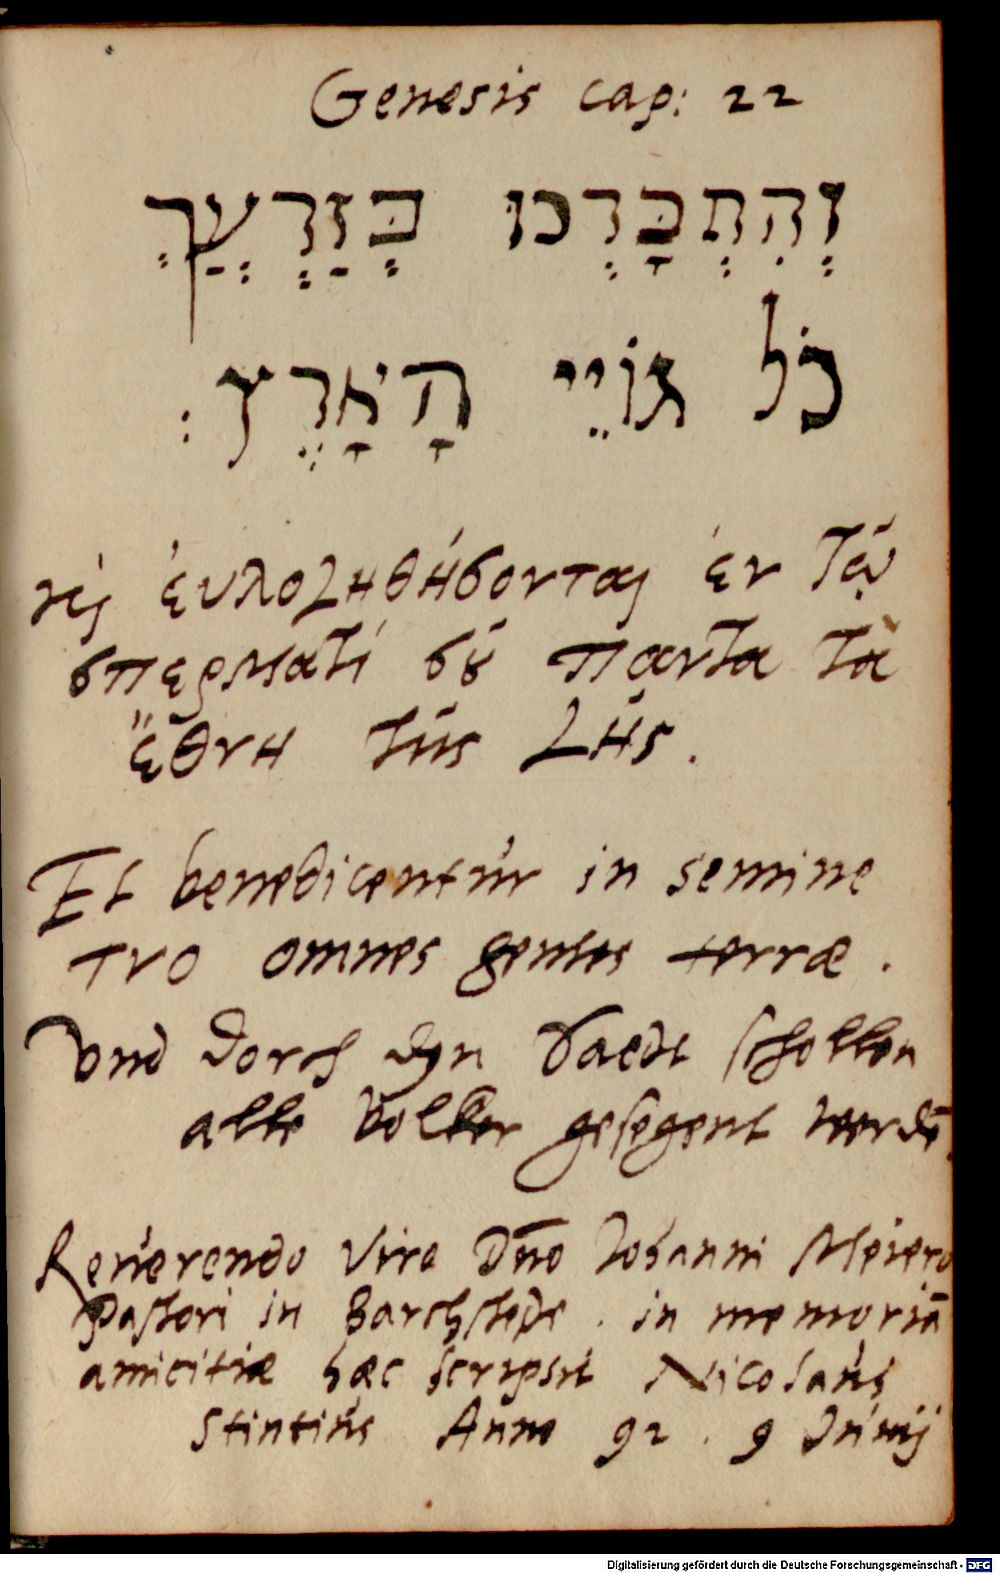 Genesis cap: 22
וְהִתְבָּרְכוּ בְּזַרְעֲךָ
כֹּל גּוֹיֵי הָאָרֶץ :
κὶ ἐυλογηθήσονται ἐν τῷ
σπερματί σȣ͂ παντα τὰ
ἔθνη τῆς γῆς.
Et benedicentur in semine
TVO omnes gentes terræ.
Vnd dorch dyn Saedt schollen
alle Volker gesegent werdē.
Reuerendo Viro Dn̄o Iohanni Meiero
Pastori in Barchstede. in memoriā
amicitiæ hæc scripsit Nicolaus
Stintius Anno 92. 9 Iunij
Digitalisierung gefördert durch die Deutsche Forschungsgemeinschaft - DFG